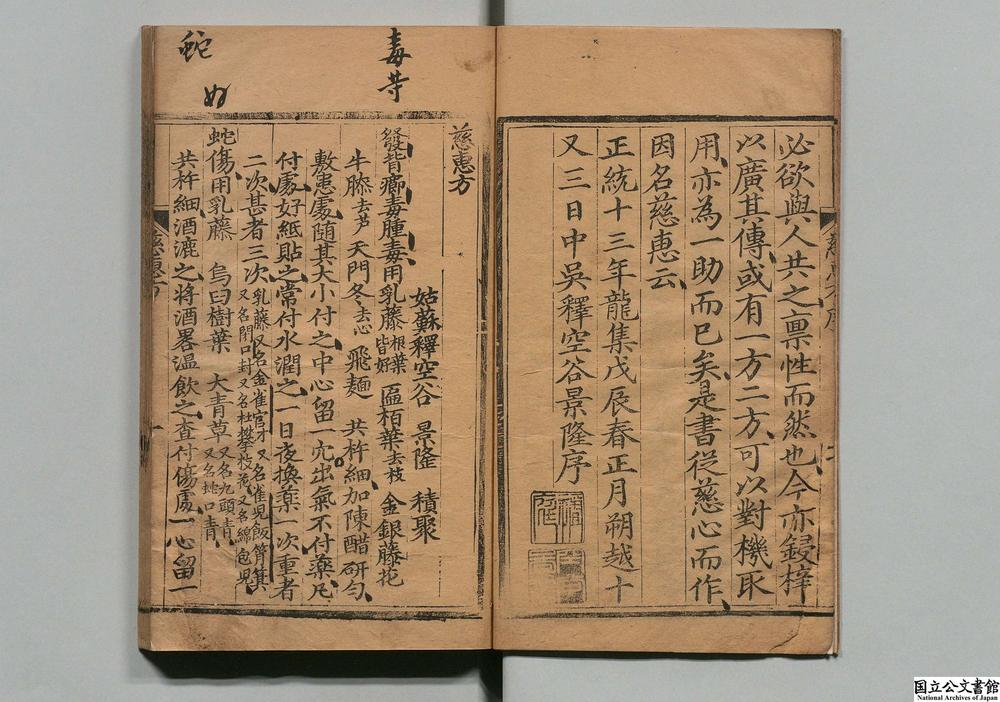 必欲與人共之禀性而然也今亦鋟梓
以廣其傳或有一方二方可以對機取
用亦為一助而已矣是書從慈心而作
因名慈惠云
正統十三年龍集戊辰春正月朔越十
又三日中吳釋空谷景隆序
毒
慈惠方
姑蘇釋空谷 景隆 積聚
發背癰毒腫毒用乳藤根葉皆好 匾栢葉去枝 金銀藤花
牛膝去芦 天門冬去心 飛麺 共杵細加陳醋研匀
敷患處随其大小付之中心留一穴出氣不付藥凢
付處好紙貼之常付水潤之一日夜換藥一次重者
二次甚者三次乳藤又名金雀官才又名雀児飯筲箕又名閉口封又名杜攀枝花又名綿包児
蛇傷用乳藤 烏臼樹葉 大青草又名九頭青又名挑口青
共杵細酒漉之将酒畧温飲之查付傷處一心留一
慈惠方
蛇
国立公文書館
National Archives of Japan